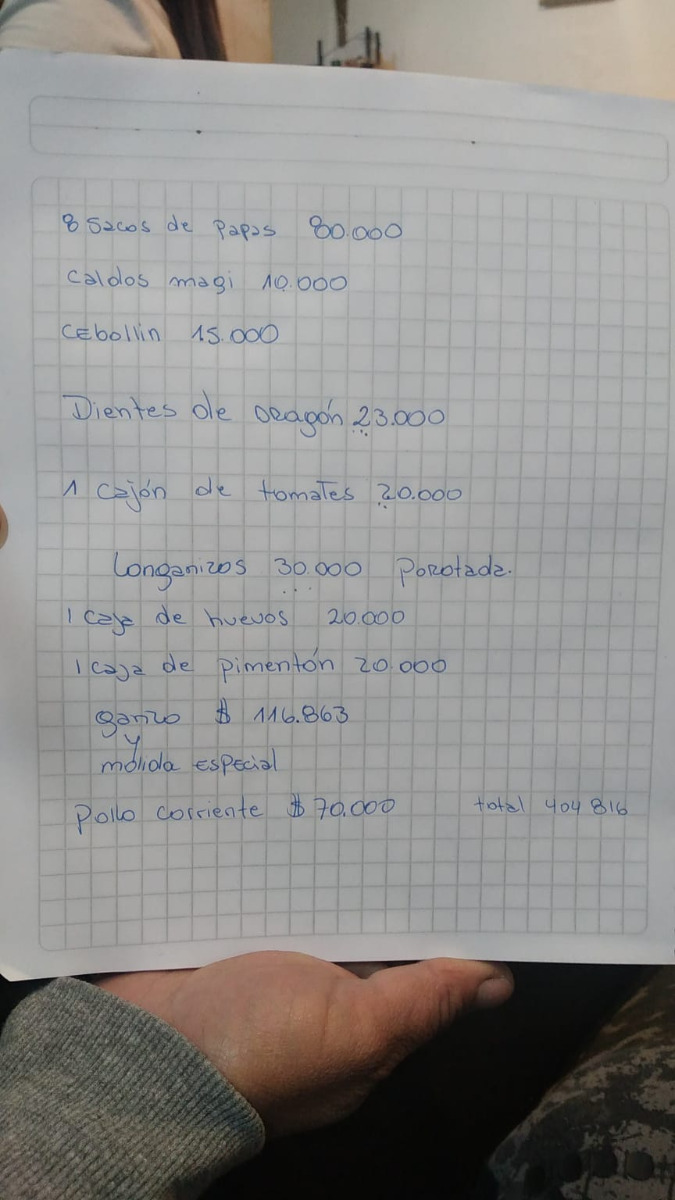 8 sacos de papas 80.000
caldos magi 10.000
cebollin 15.000
Dientes de dragón 23.000
1 cajón de tomates 20.000
longanizas 30.000 porotada.
1 caja de huevos 20.000
1 caja de pimentón 20.000
ganzo $ 116.863
y
molida especial
pollo corriente $ 70.000 total 404 816